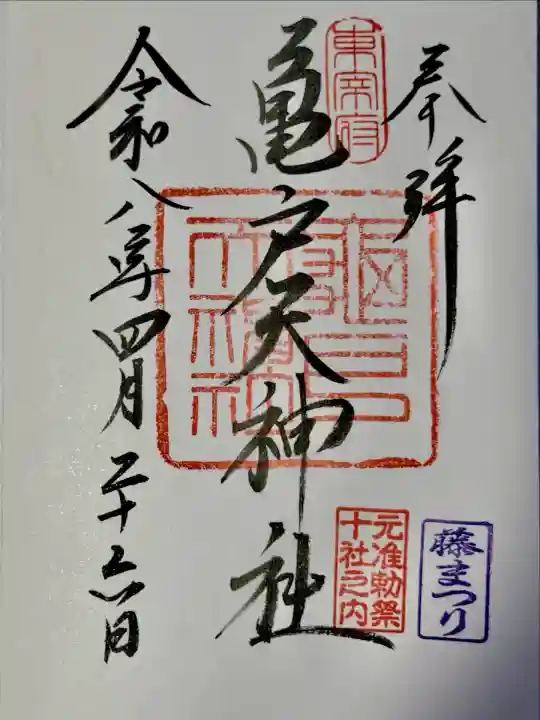 奉拝
東宰府
亀戸天神社
令和八年四月二十六日
元准勅祭
十社之内
藤まつり